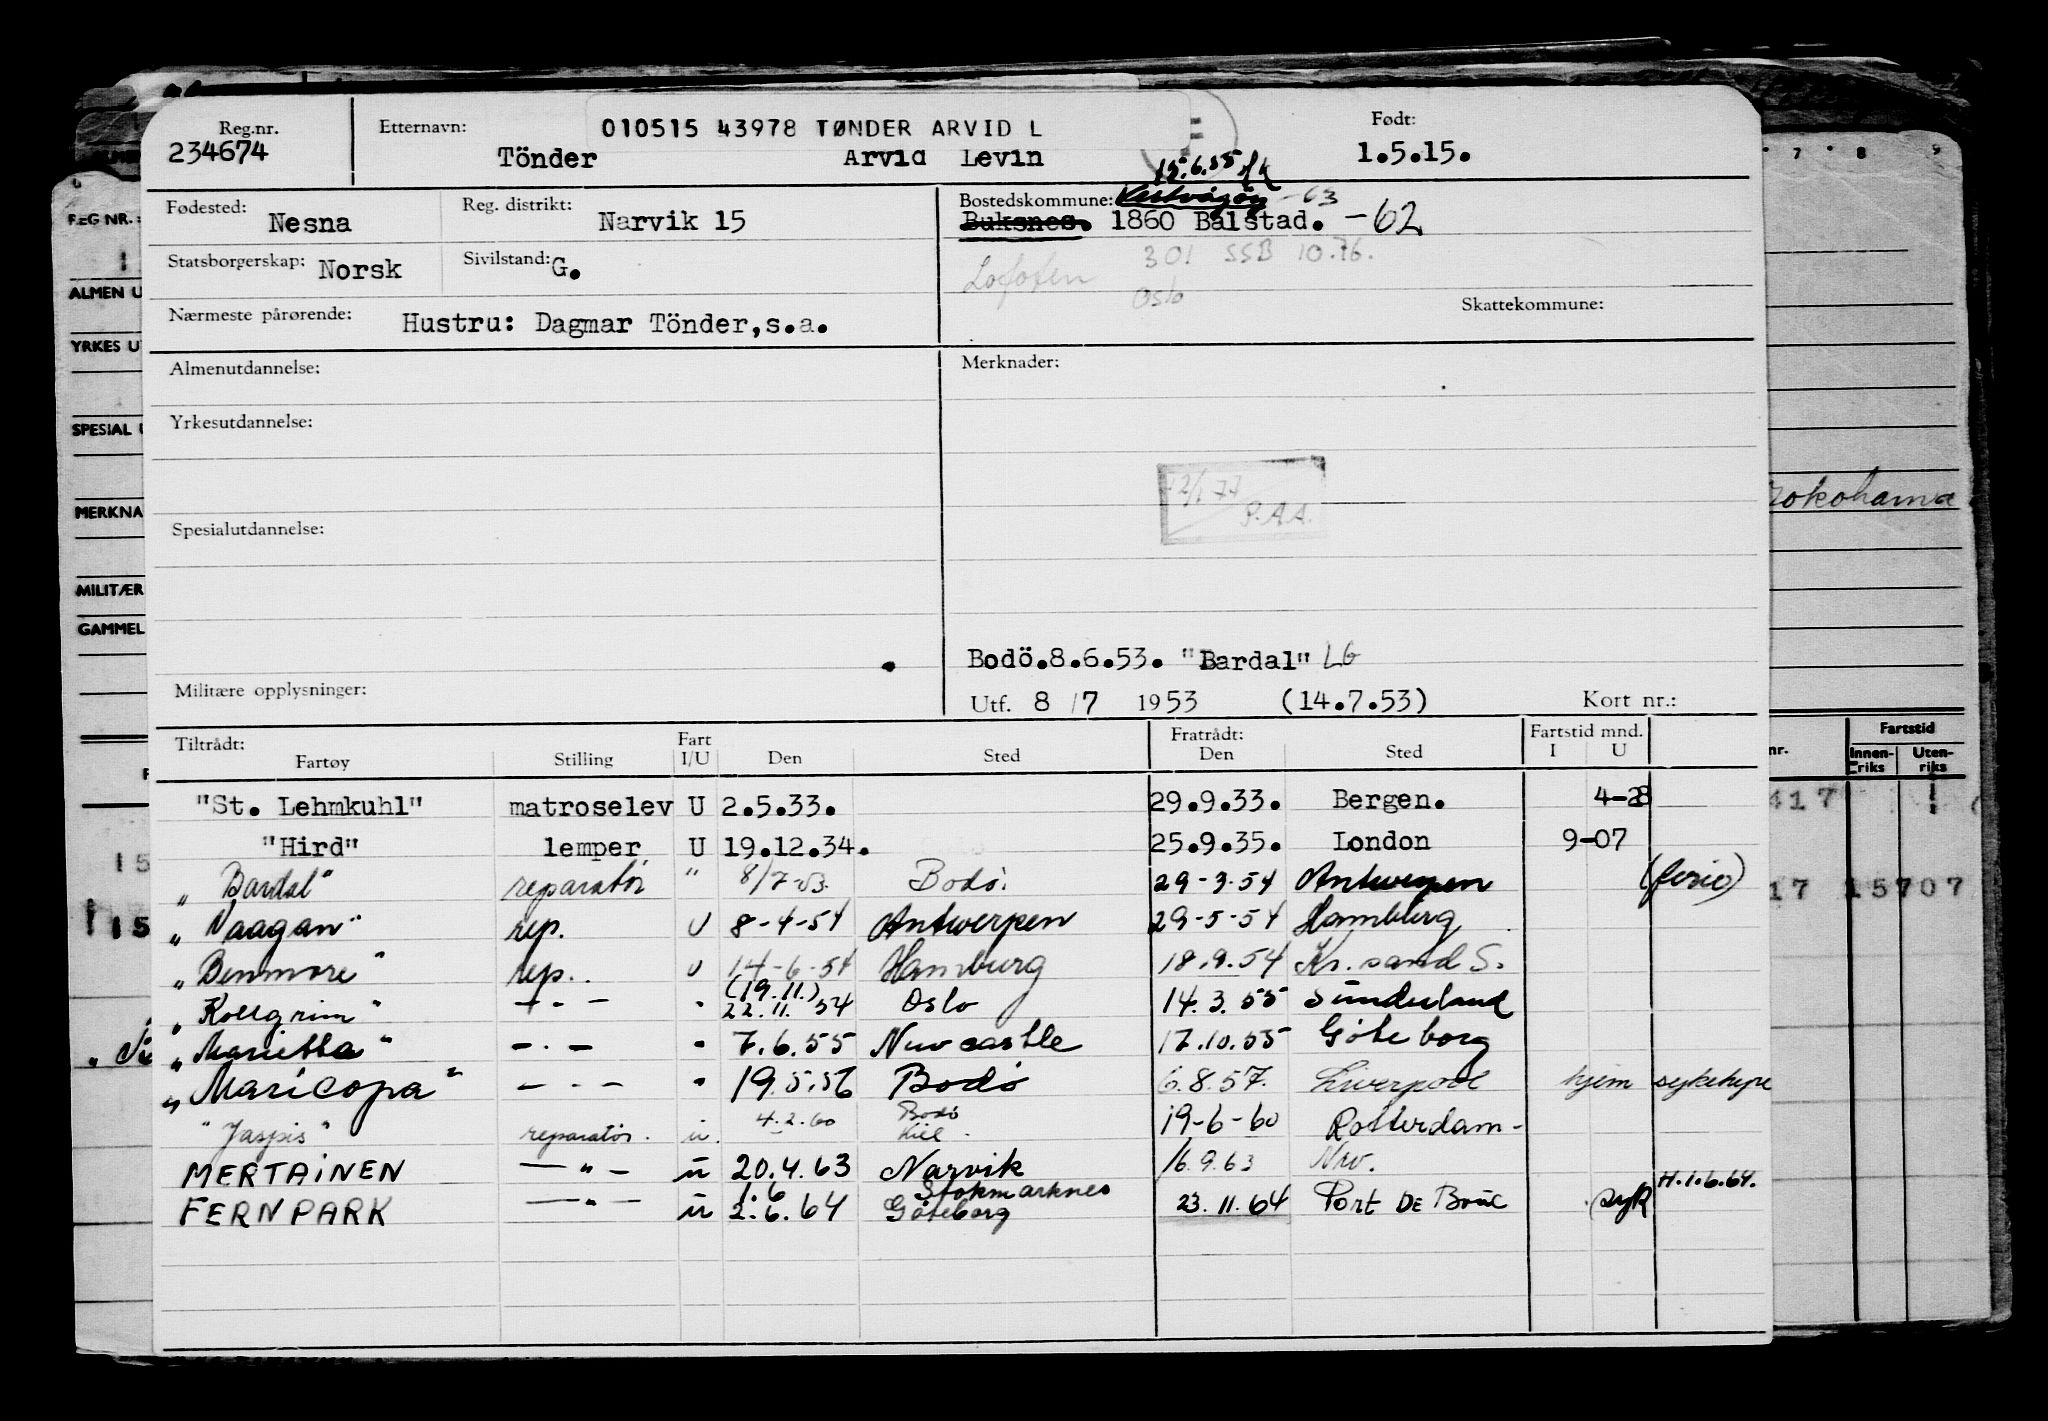 Reg.nr. 234674
Etternavn: 010515 43978 TØNDER ARVID L
Tönder Arvid Levin
Født: 1.5.15.
Fødested: Nesna
Reg. distrikt: Narvik 15
15.6.55
Bostedskommune: Vestvågøy -63
Buksnes. 1860 Balstad. -62
Statsborgerskap: Norsk
Sivilstand: G.
Lofoten 301 SSB 10.76.
Oslo
Skattekommune:
Nærmeste pårørende: Hustru: Dagmar Tönder,s.a.
Almenutdannelse:
Merknader:
Yrkesutdannelse:
12/1 77
P.A.A.
Spesialutdannelse:
Bodö.8.6.53. "Bardal" LG
Militære opplysninger:
Utf. 8/7 1953 (14.7.53) Kort nr.:
Tiltrådt: Fartøy Stilling Fart I/U Den Sted Fratrådt: Den Sted Fartstid mnd. I U
"St. Lehmkuhl" matroselev U 2.5.33. 29.9.33. Bergen. 4-28
"Hird" lemper U 19.12.34. 25.9.35. London 9-07
„ Bardal" reparatör " 8/7-53. Bodö. 29-3-54 Antwerpen (ferie)
„ Vaagan" rep. U 8-4-54 Antwerpen 29-5-54 Hamburg
„ Benmore" rep. U 14-6-54 Hamburg 18.9.54 Kr.sand S.
„ Kollgrim" - . - " (19.11.) 22.11.54 Oslo 14.3.55 Sunderland
„ Marietta" - . - " 7.6.55 Newcastle 17.10.55 Göteborg
„ Maricopa" - . - " 19.5.56 Bodö 6.8.57. Liverpool hjem
"Jaspis" reparatör. u. 4.2.60 Bodö Kiel. 19-6-60 Rotterdam-
MERTAINEN - " - u 20.4.63 Narvik 16.9.63 Nrv.
FERNPARK - " - u 1.6 2.6.64 Stokmarknes Göteborg 23.11.64 Port DE Bouc syk H.1.6.64.
REG NR.:
ALMEN U
YRKES U
SPESIAL
MERKNA
MILITÆR
GAMMEL
7 8 9
Yokohama
nr. Fartstid
Innenriks Utenriks
417
17 15707
15
15